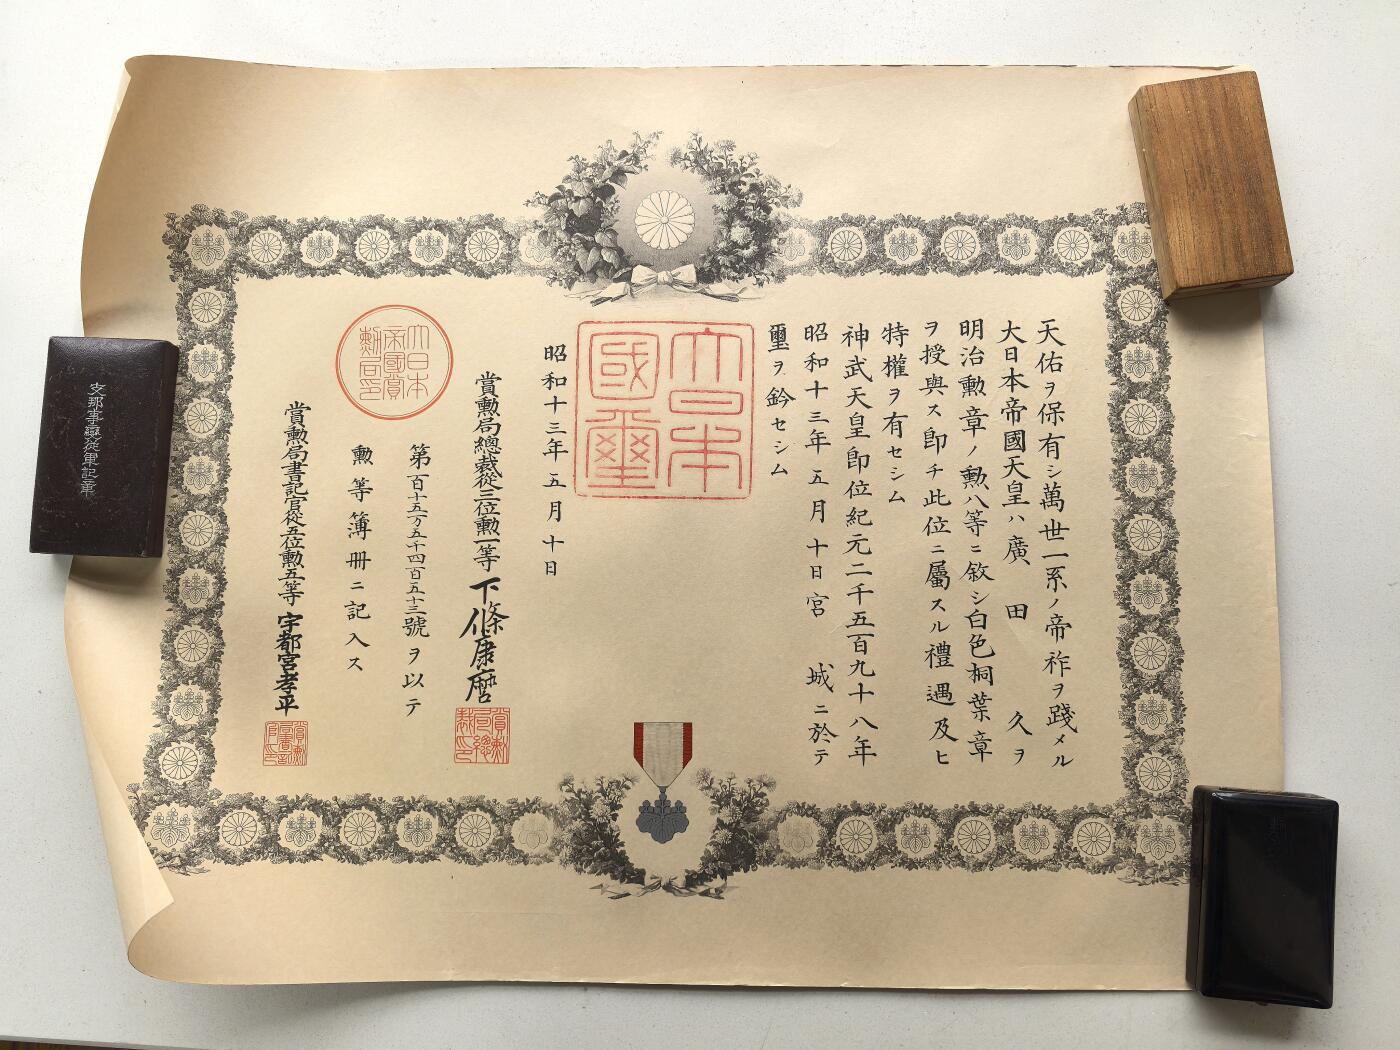 天佑ヲ保有シ萬世一系ノ帝祚ヲ踐メル
大日本帝國天皇ハ廣田久ヲ
明治勲章ノ勲八等ニ敘シ白色桐葉章
ヲ授與ス即チ此位ニ屬スル禮遇及ヒ
特權ヲ有セシム
神武天皇即位紀元二千五百九十八年
昭和十三年五月十日宮城ニ於テ
璽ヲ鈐セシム
大日本
國璽
昭和十三年五月十日
賞勲局總裁從三位勲一等下條康麿
賞勲局總裁印
第百十五万五千四百五十三號ヲ以テ
勲等簿冊ニ記入ス
大日本
帝國賞
勲局印
賞勲局書記官從五位勲五等宇都宮孝平
賞勲局書記官印
支那事變從軍記章